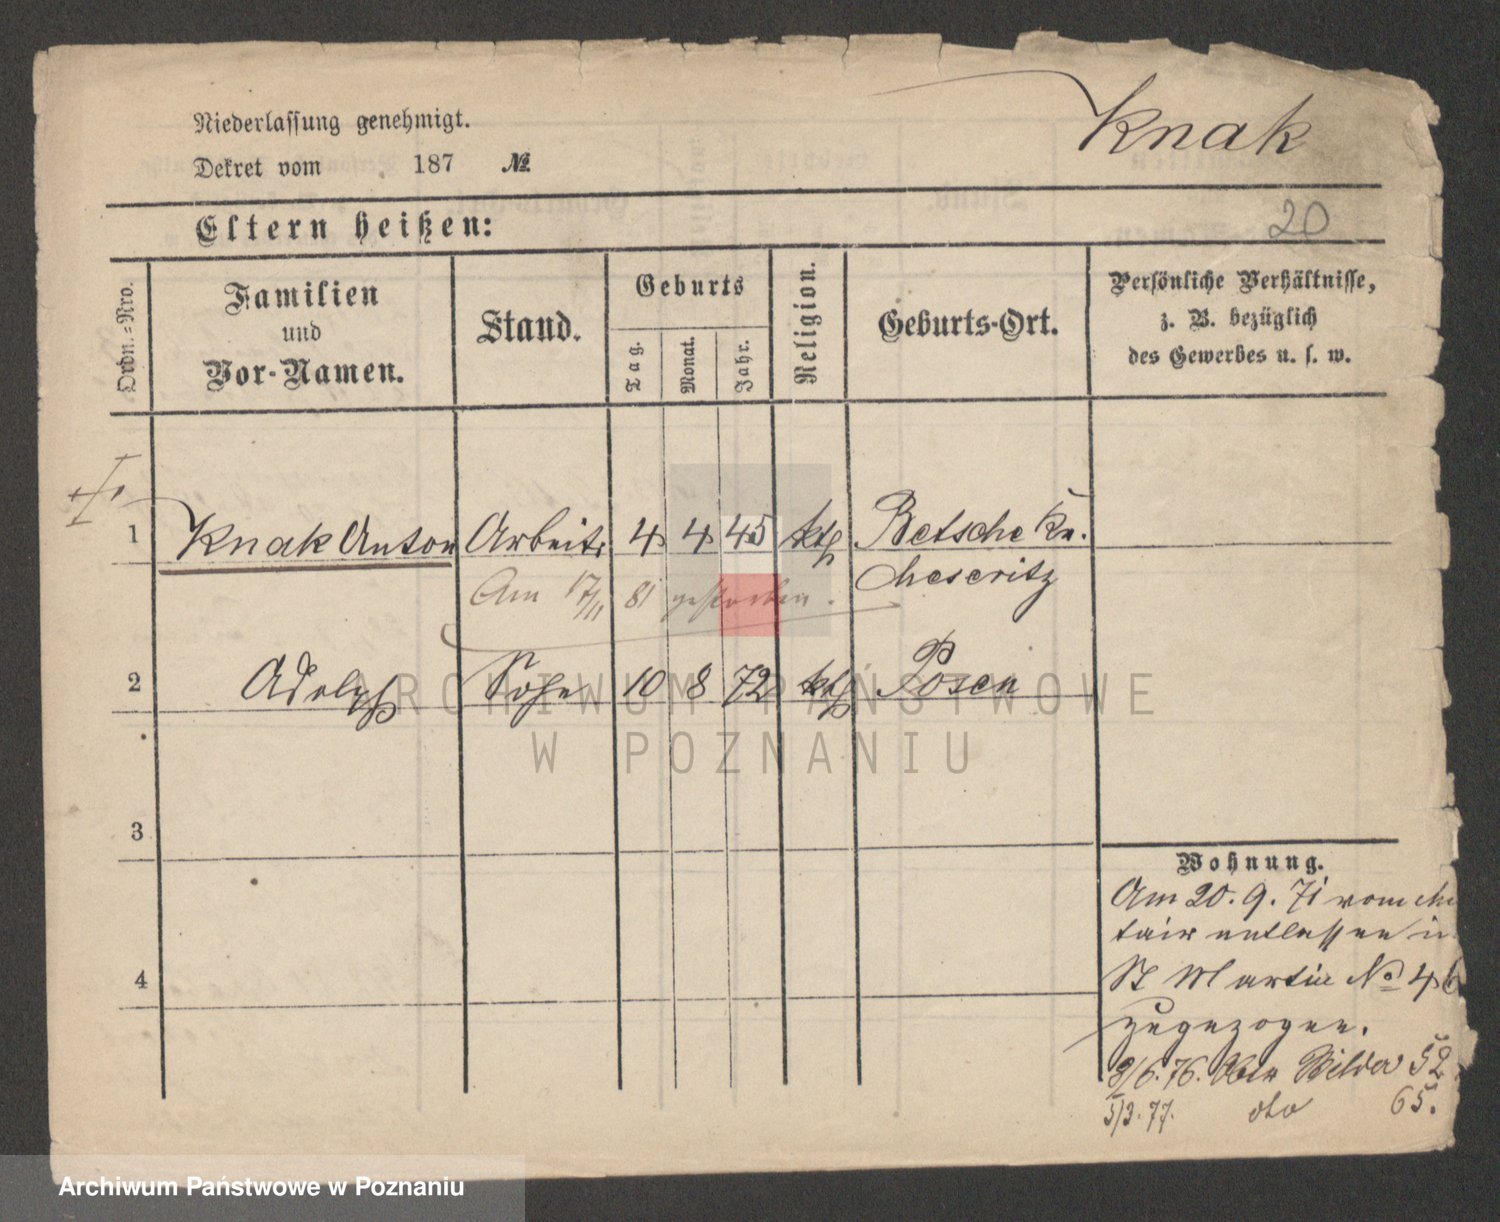 Knak
Niederlassung genehmigt.
Dekret vom 187 №
20
Eltern heißen:
Ordn.-Nro.
Familien
und
Vor-Namen.
Stand.
Geburts
Tag.
Monat.
Jahr.
Religion.
Geburts-Ort.
Persönliche Verhältnisse,
z. B. bezüglich
des Gewerbes u. s. w.
1 Knak Anton Arbeitr 4 4 45 kth Betsche Kr.
Meseritz
Am 17/11 81 gestorben.
2 Adolph Sohn 10 8 72 kth Posen
ARCHIWUM PAŃSTWOWE
W POZNANIU
3
4
Wohnung.
Am 20. 9. 71 vom Mi
tair entlassen in
St Martin No 46
zugezogen.
8/6. 76. Ober Wilda 52
5/3. 77. dto 65.
Archiwum Państwowe w Poznaniu